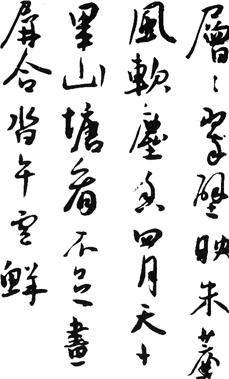 層〻翠壁映朱
風軟塵香四月天十
里山塘看不足畫
屏合沓午雲鮮